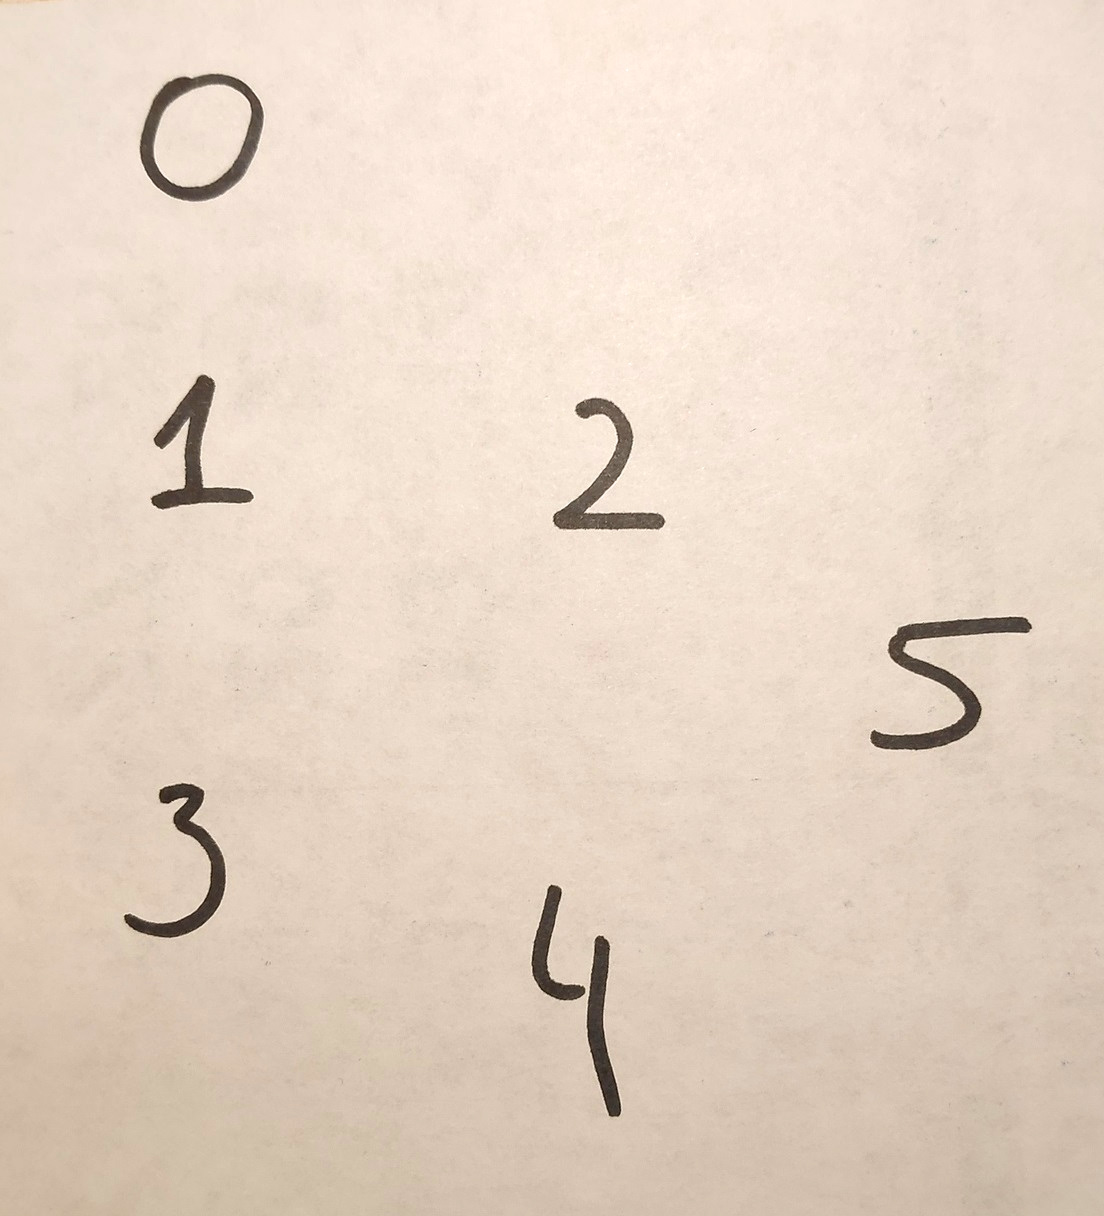 0
1 2
5
3
4